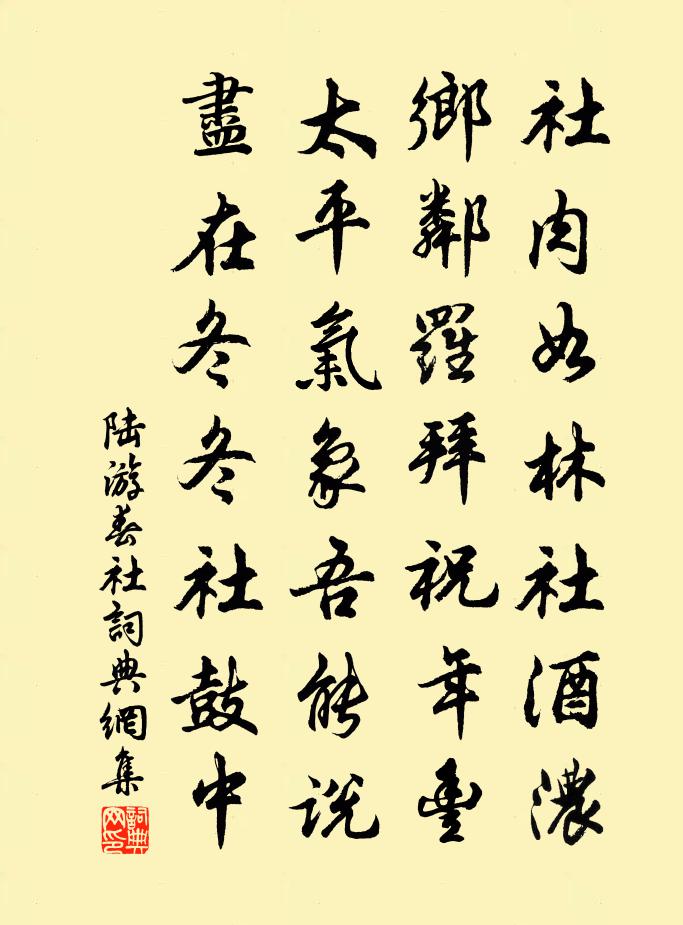 社肉如林社酒濃
鄉鄰羅拜祝年豐
太平氣象吾能說
盡在冬冬社鼓中
陆游春社詞典網集
詞典網印